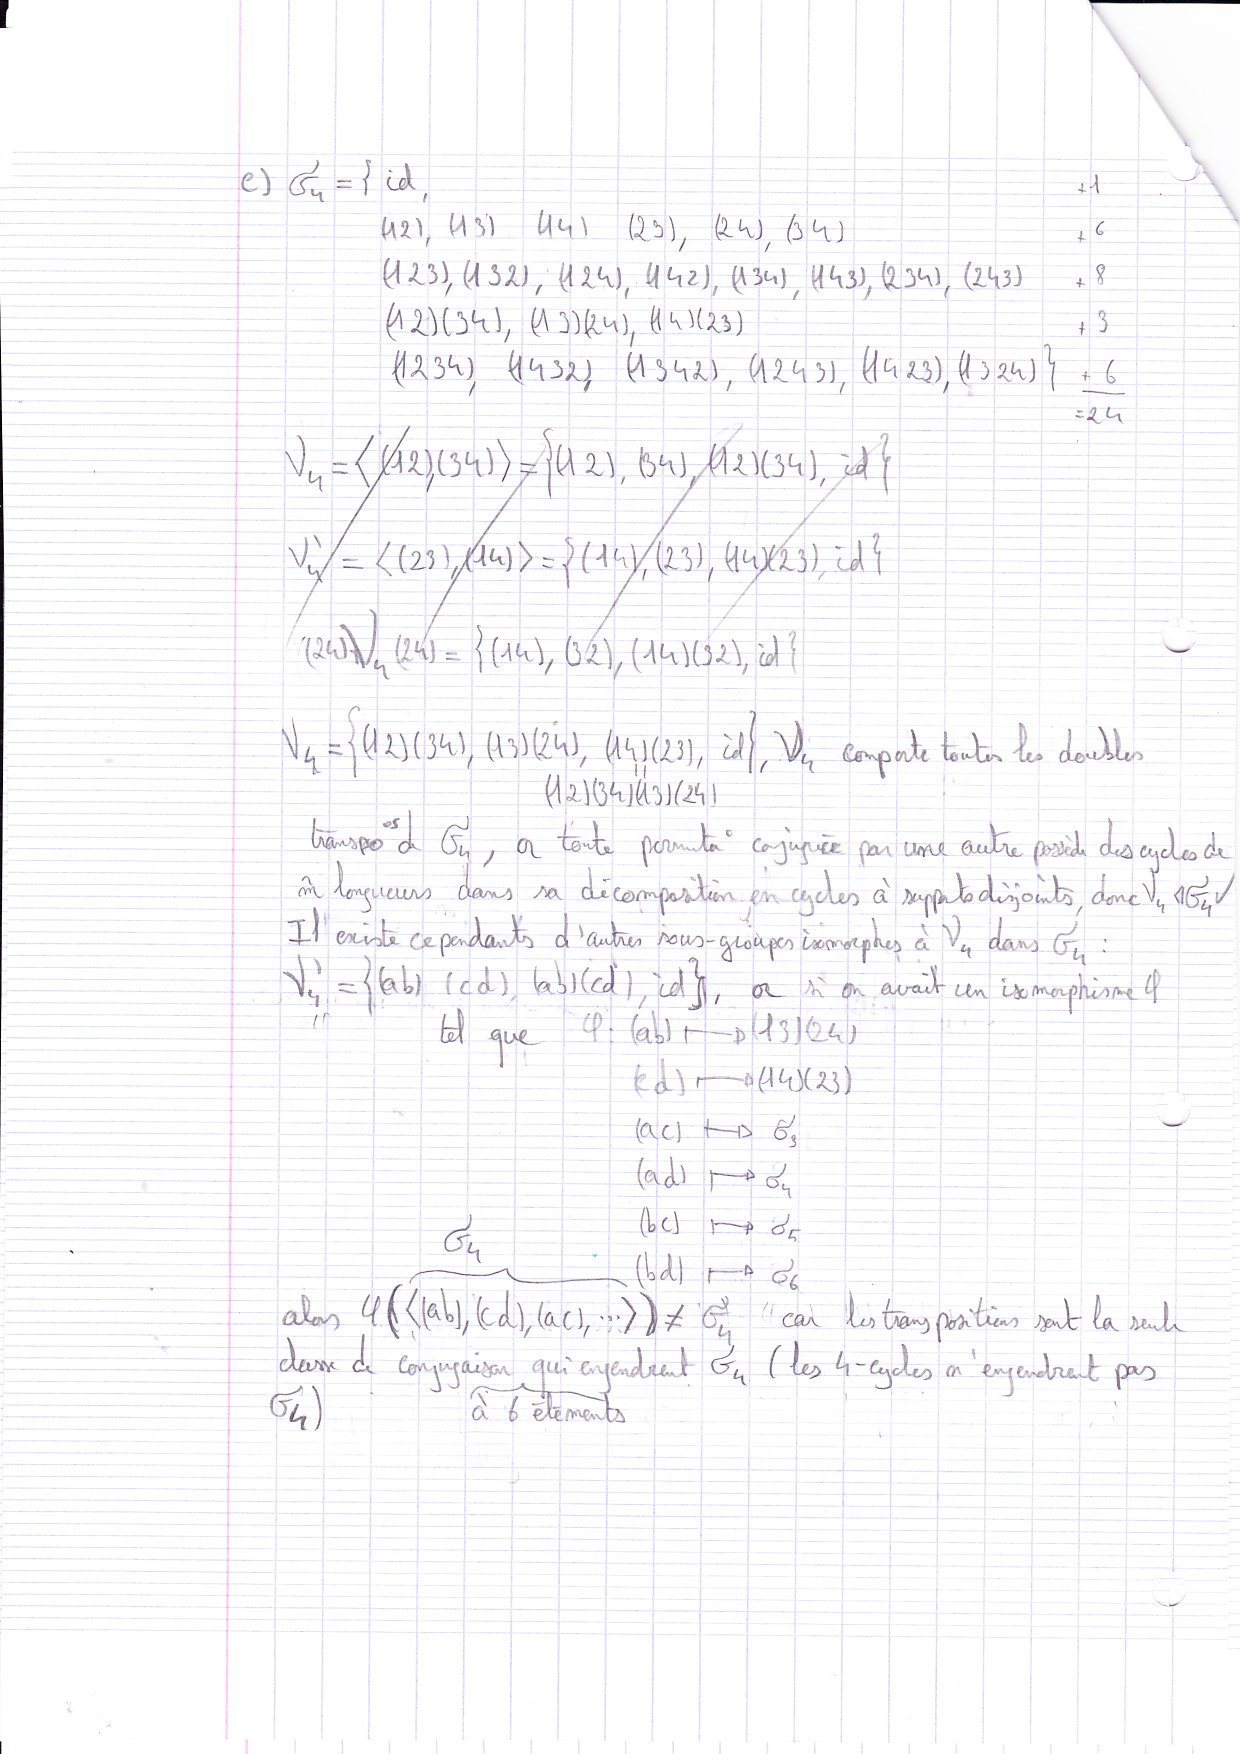 e) σ₄ = { id, +1
(12), (13) (14) (23), (24), (34) + 6
(123), (132), (124), (142), (134), (143), (234), (243) + 8
(12)(34), (13)(24), (14)(23) + 3
(1234), (1432), (1342), (1243), (1423), (1324) } + 6
= 24
V₄ = ⟨(12),(34)⟩ = {(12), (34), (12)(34), id}
V₄' = ⟨(23),(14)⟩ = {(14), (23), (14)(23), id}
(24) V₄ (24) = {(14), (32), (14)(32), id}
V₄ = {(12)(34), (13)(24), (14)(23), id}, V₄ comporte toutes les doubles
"
(12)(34)(13)(24)
transpo^os de σ₄, or toute permuta° conjuguée par une autre possède des cycles de
m̂ longueurs dans sa décomposition en cycles à supports disjoints, donc V₄ ⊲ σ₄ ✓
Il existe cependants d'autres sous-groupes isomorphes à V₄ dans σ₄ :
V₄' = {(ab) (cd), (ab)(cd), id}, or si on avait un isomorphisme φ
tel que φ: (ab) ↦ (13)(24)
(cd) ↦ (14)(23)
(ac) ↦ σ₃
(ad) ↦ σ₄
(bc) ↦ σ₅
(bd) ↦ σ₆
σ₄
alors φ(⟨(ab), (cd), (ac), ...⟩) ≠ σ₄ car les transpositions sont la seule
classe de conjugaison qui engendrent σ₄ (les 4-cycles n'engendrent pas
σ₄) à 6 éléments